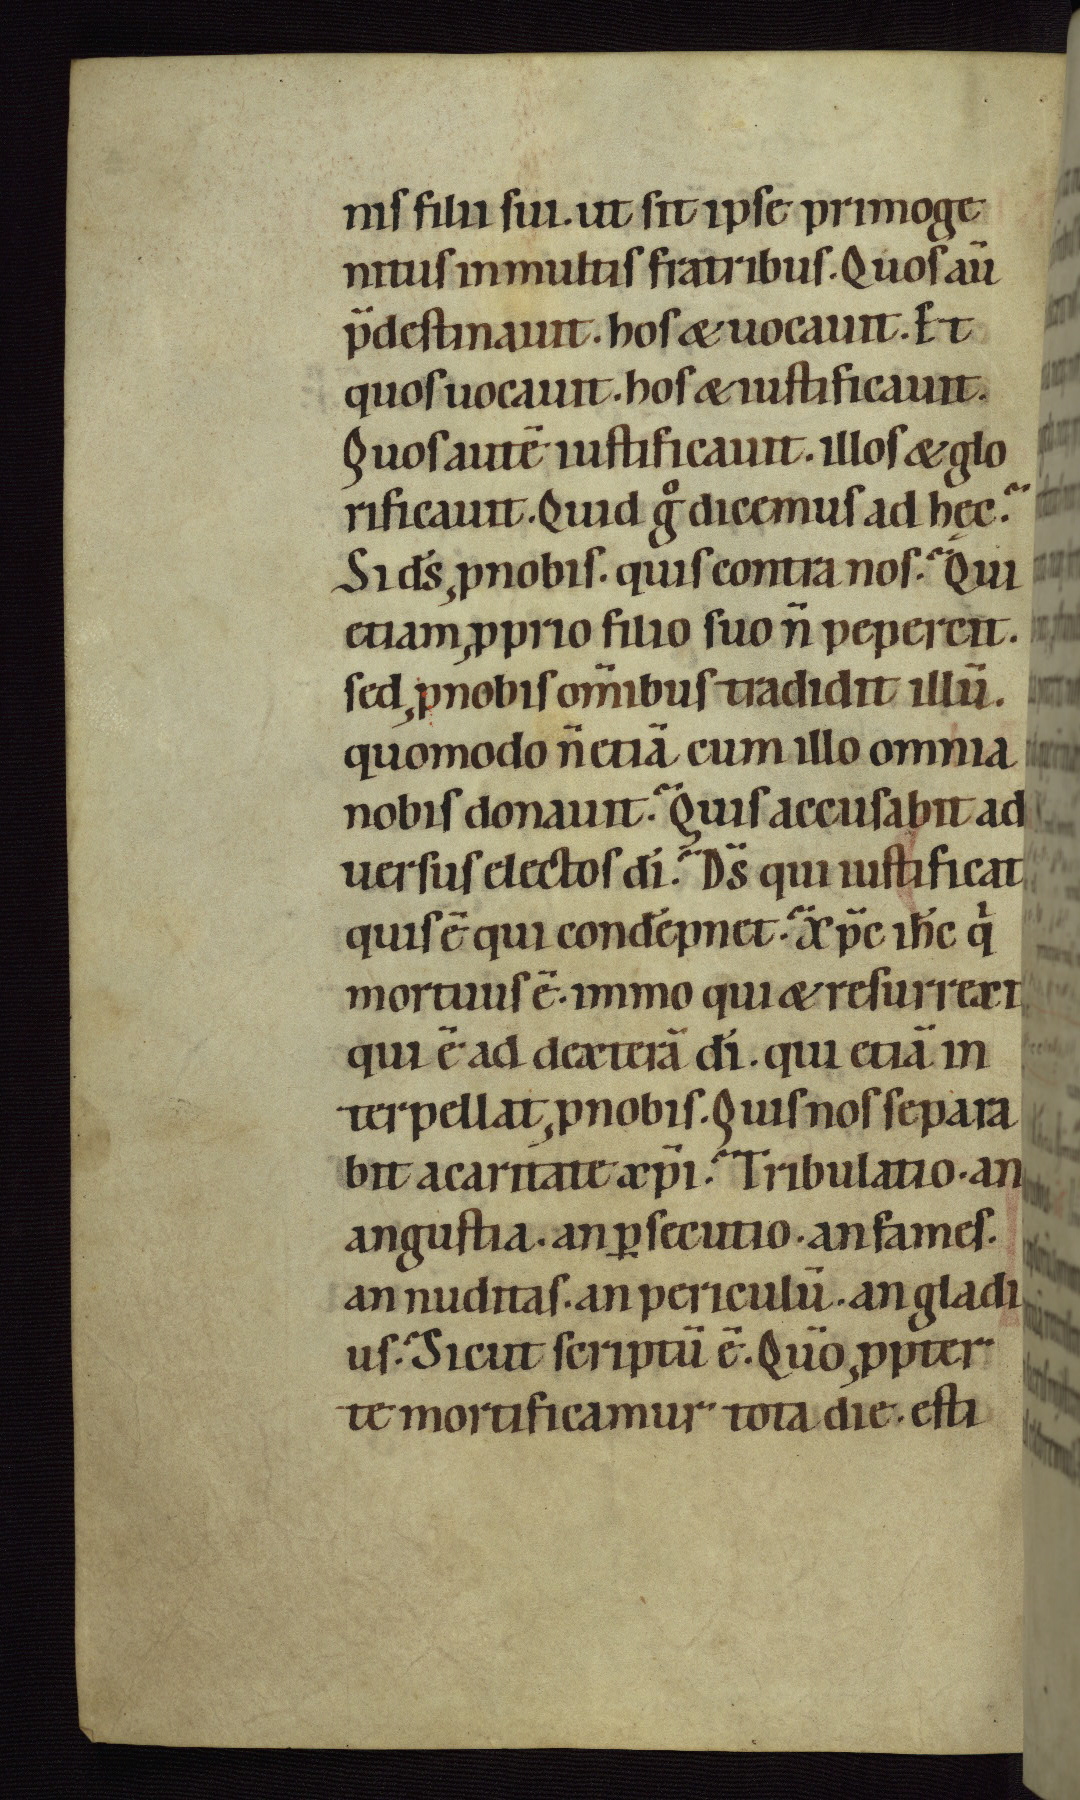 nis filii sui. ut sit ipse primoge
nitus in multis fratribus. Quos aū
p̄destinauit. hos & uocauit. Et
quos uocauit. hos & iustificauit.
Quos autē iustificauit. illos & glo
rificauit. Quid gͦ dicemus ad hęc?
Si ds̄ ꝓ nobis. quis contra nos? Qui
etiam ꝓprio filio suo n̄ pepercit.
sed ꝓ nobis om̄ibus tradidit illū.
quomodo n̄ etiā cum illo omnia
nobis donauit? Quis accusabit ad
uersus electos dī? Ds̄ qui iustificat
quis ē qui condēpnet? Xp̄c ih̄c qⁱ
mortuus ē. immo qui & resurrexi
qui ē ad dexterā dī. qui etiā in
terpellat ꝓ nobis. Quis nos separa
bit a caritate xp̄i? Tribulatio. an
angustia. an ꝑsecutio. an fames.
an nuditas. an periculū. an gladi
us? Sicut scriptū ē. Qūo ꝓpter
te mortificamur tota die. esti